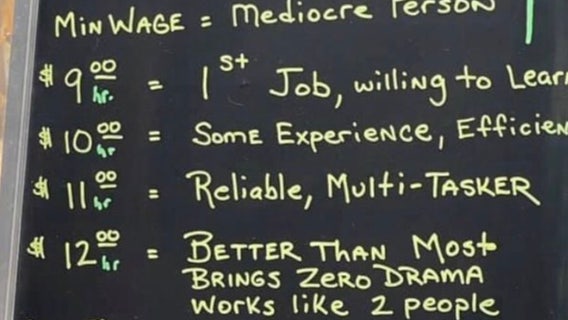 MIN WAGE = Mediocre Person
$ 9 00 hr. = 1st Job, willing to Lear
$ 10 00 hr = Some Experience, Efficien
$ 11 00 hr = Reliable, Multi-TASKER
$ 12 00 hr = BETTER THAN Most
BRINGS ZERO DRAMA
Works like 2 people